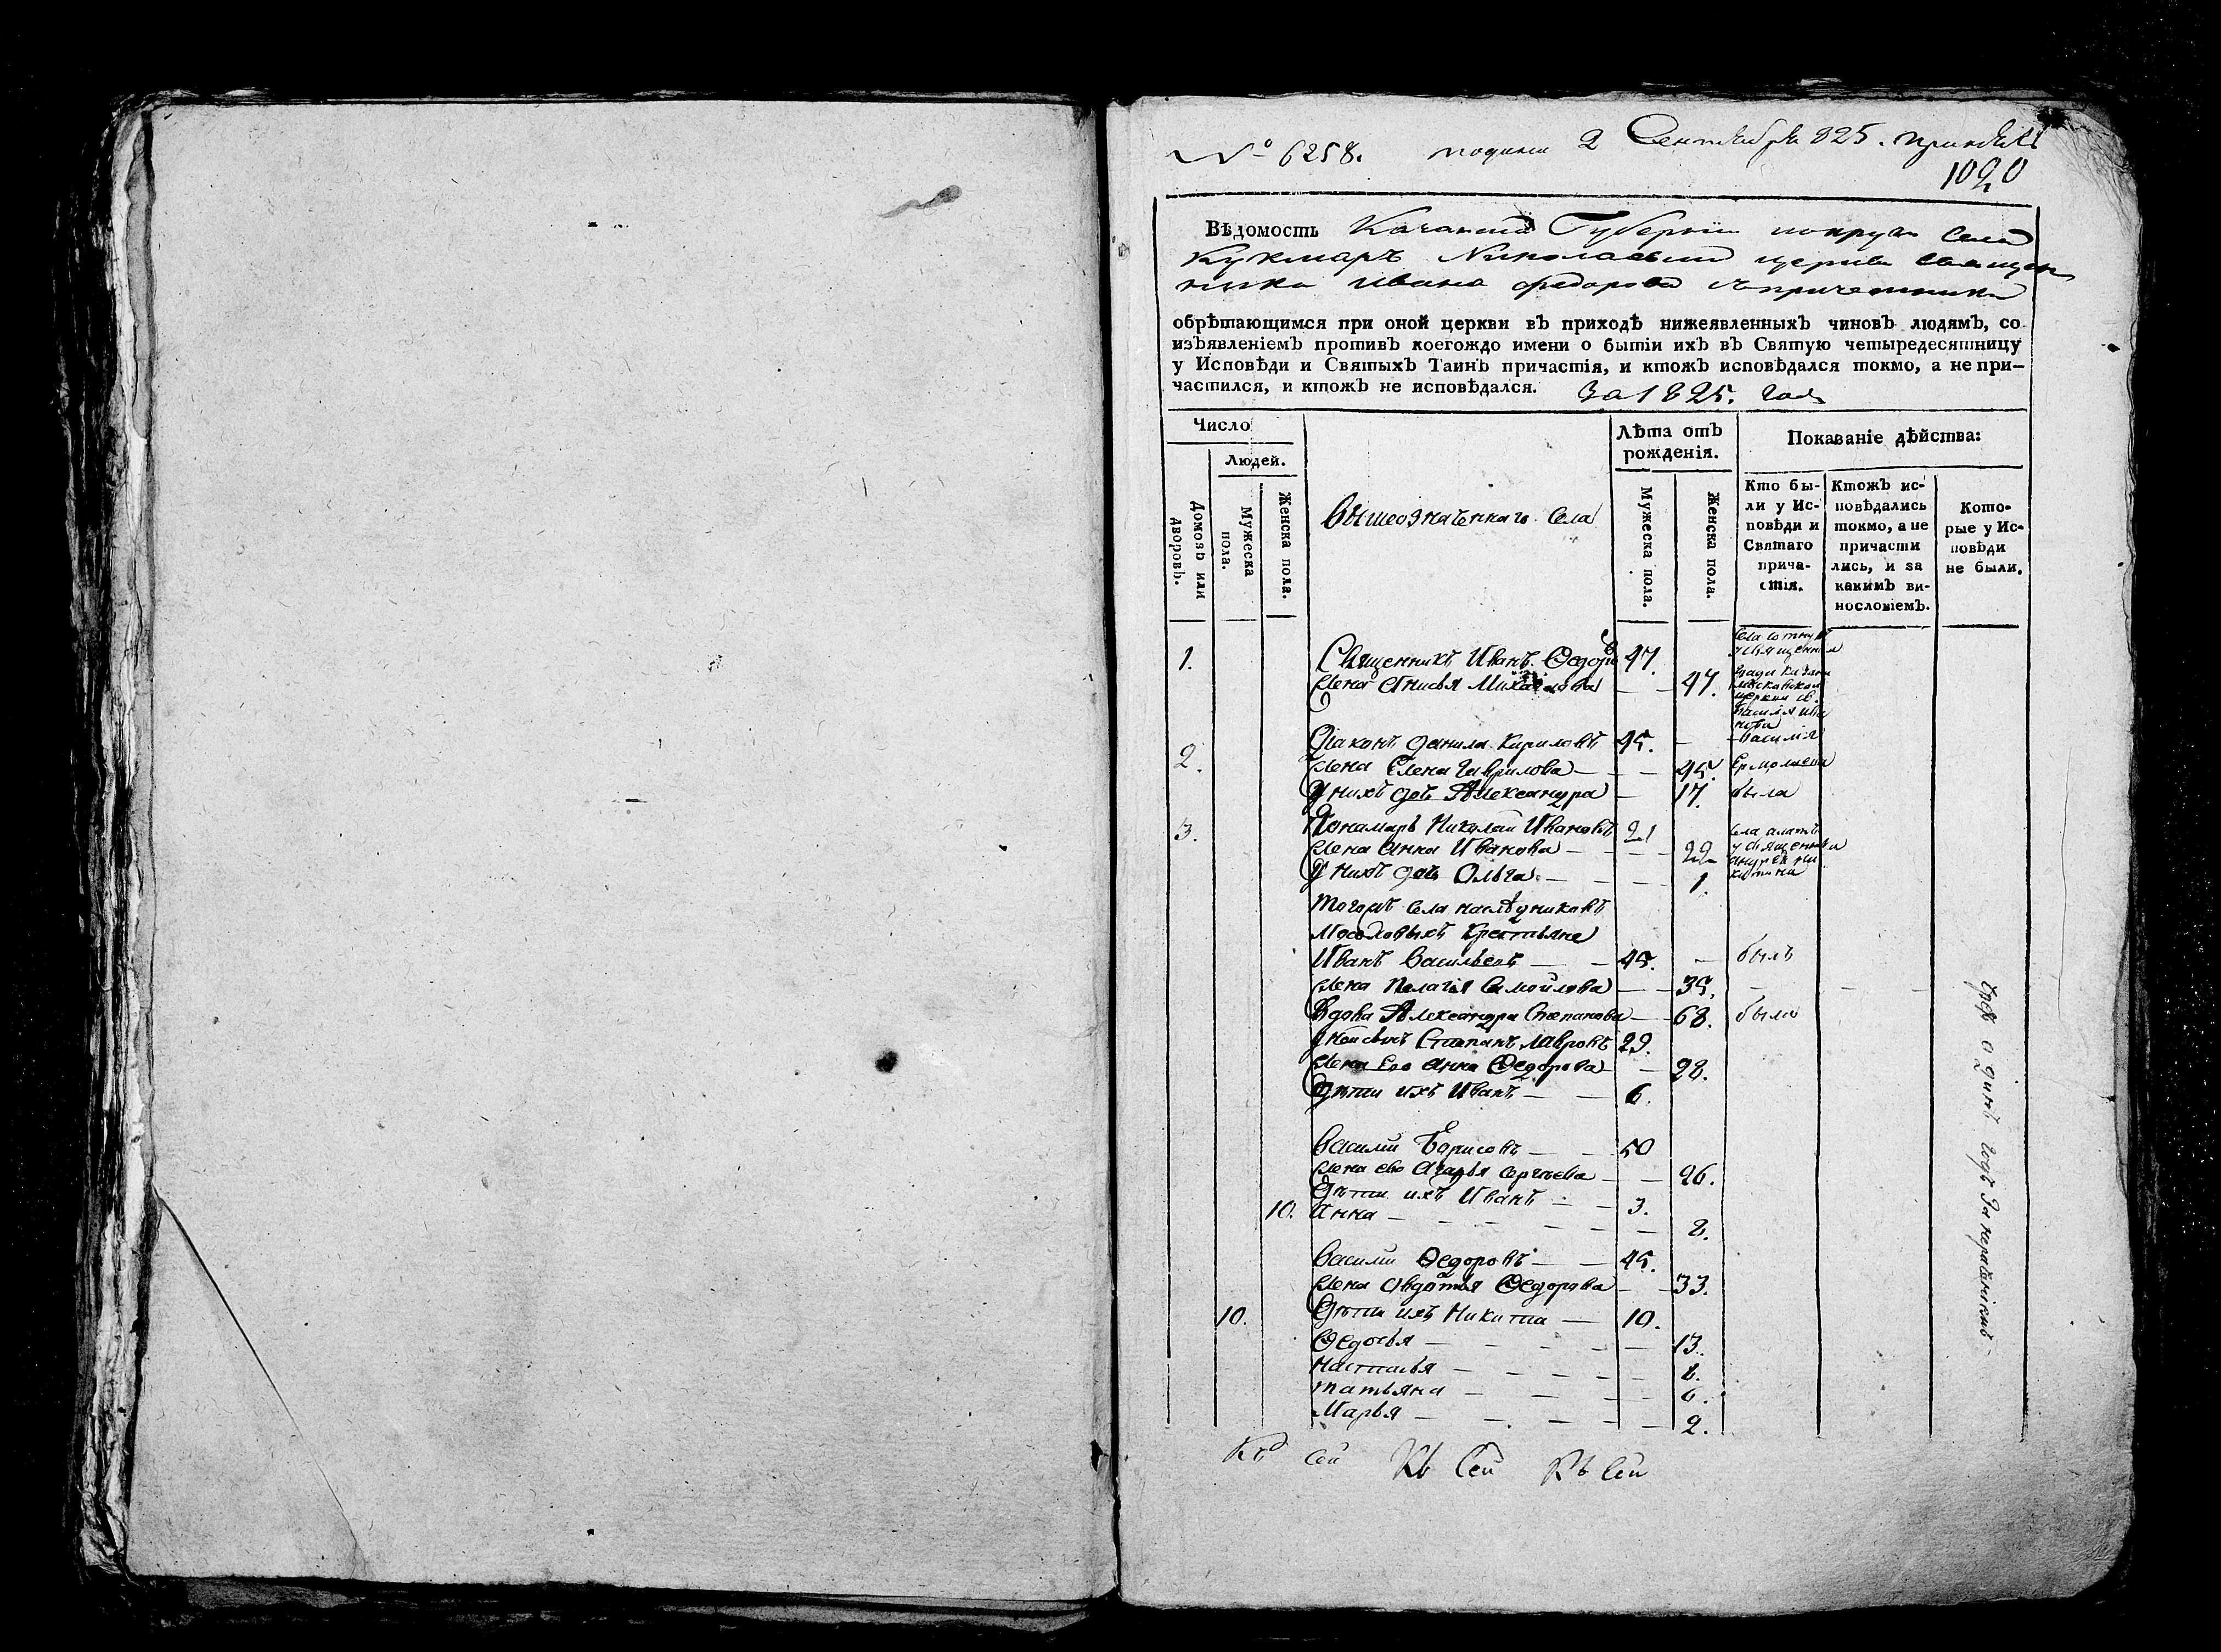 № 6258. подана 2 Сентября 825.
1020
Вѣдомость Казанской Губерніи села
Кукмаръ Николаевской церкви священ
ника Ивана Федорова
обрѣтающимся при оной церкви въ приходѣ нижеявленныхъ чиновъ людямъ, со
изъявленіемъ противъ коегождо имени о бытіи ихъ въ Святую четыредесятницу
у Исповѣди и Святыхъ Таинъ причастія, и ктожъ исповѣдался токмо, а не при-
частился, и ктожъ не исповѣдался. За 1825. годъ
Число
Людей.
Домовъ или дворовъ.
Мужеска пола.
Женска пола.
вышеозначеннаго села
Лѣта отъ рожденія.
Мужеска пола.
Женска пола.
Показаніе дѣйства:
Кто бы-
ли у Ис-
повѣди и
Святаго
прича-
стія.
Ктожъ ис-
повѣдались
токмо, а не
причасти
лись, и за
какимъ ви-
нословіемъ.
Кото-
рые у Ис-
повѣди
не были.
1. Священникъ Иванъ Ѳедоро 47.
жена Анисья Михайлова — — 47.
2. Діаконъ Данила Кириловъ 45. —
жена Елена Гаврилова — — — 45. Ермолаева
У нихъ дочь Александра — 17. была
3. Пономарь Николай Ивановъ 21
жена Анна Иванова — — — 22 у священника
У нихъ дочь Ольга — — — 1.
тогожъ села наслѣдниковъ
Мосоловыхъ крестьяне
Иванъ Васильевъ — — 45. — былъ
жена Пелагія Самойлова — — 35. — — —
Вдова Александра Степанова — 68. была
У ной сынъ Степанъ Лавровъ 29.
жена Его Анна Ѳедорова — 28.
Дѣти ихъ Иванъ — — 6.
Василій Борисовъ — — 50
жена ево Агафья Сергѣева — — 26.
Дѣти ихъ Иванъ — — 3.
10. Анна — — — — — — 8.
Василій Ѳедоровъ — — 45.
жена Авдотья Ѳедорова — 33.
10. Дѣти ихъ Никита — 10.
Ѳедосья — — — — — 13.
Настасья — — — — — 8.
татьяна — — — — 6.
Марья — — — — — 2.
Къ сей Къ Сей Къ Сей